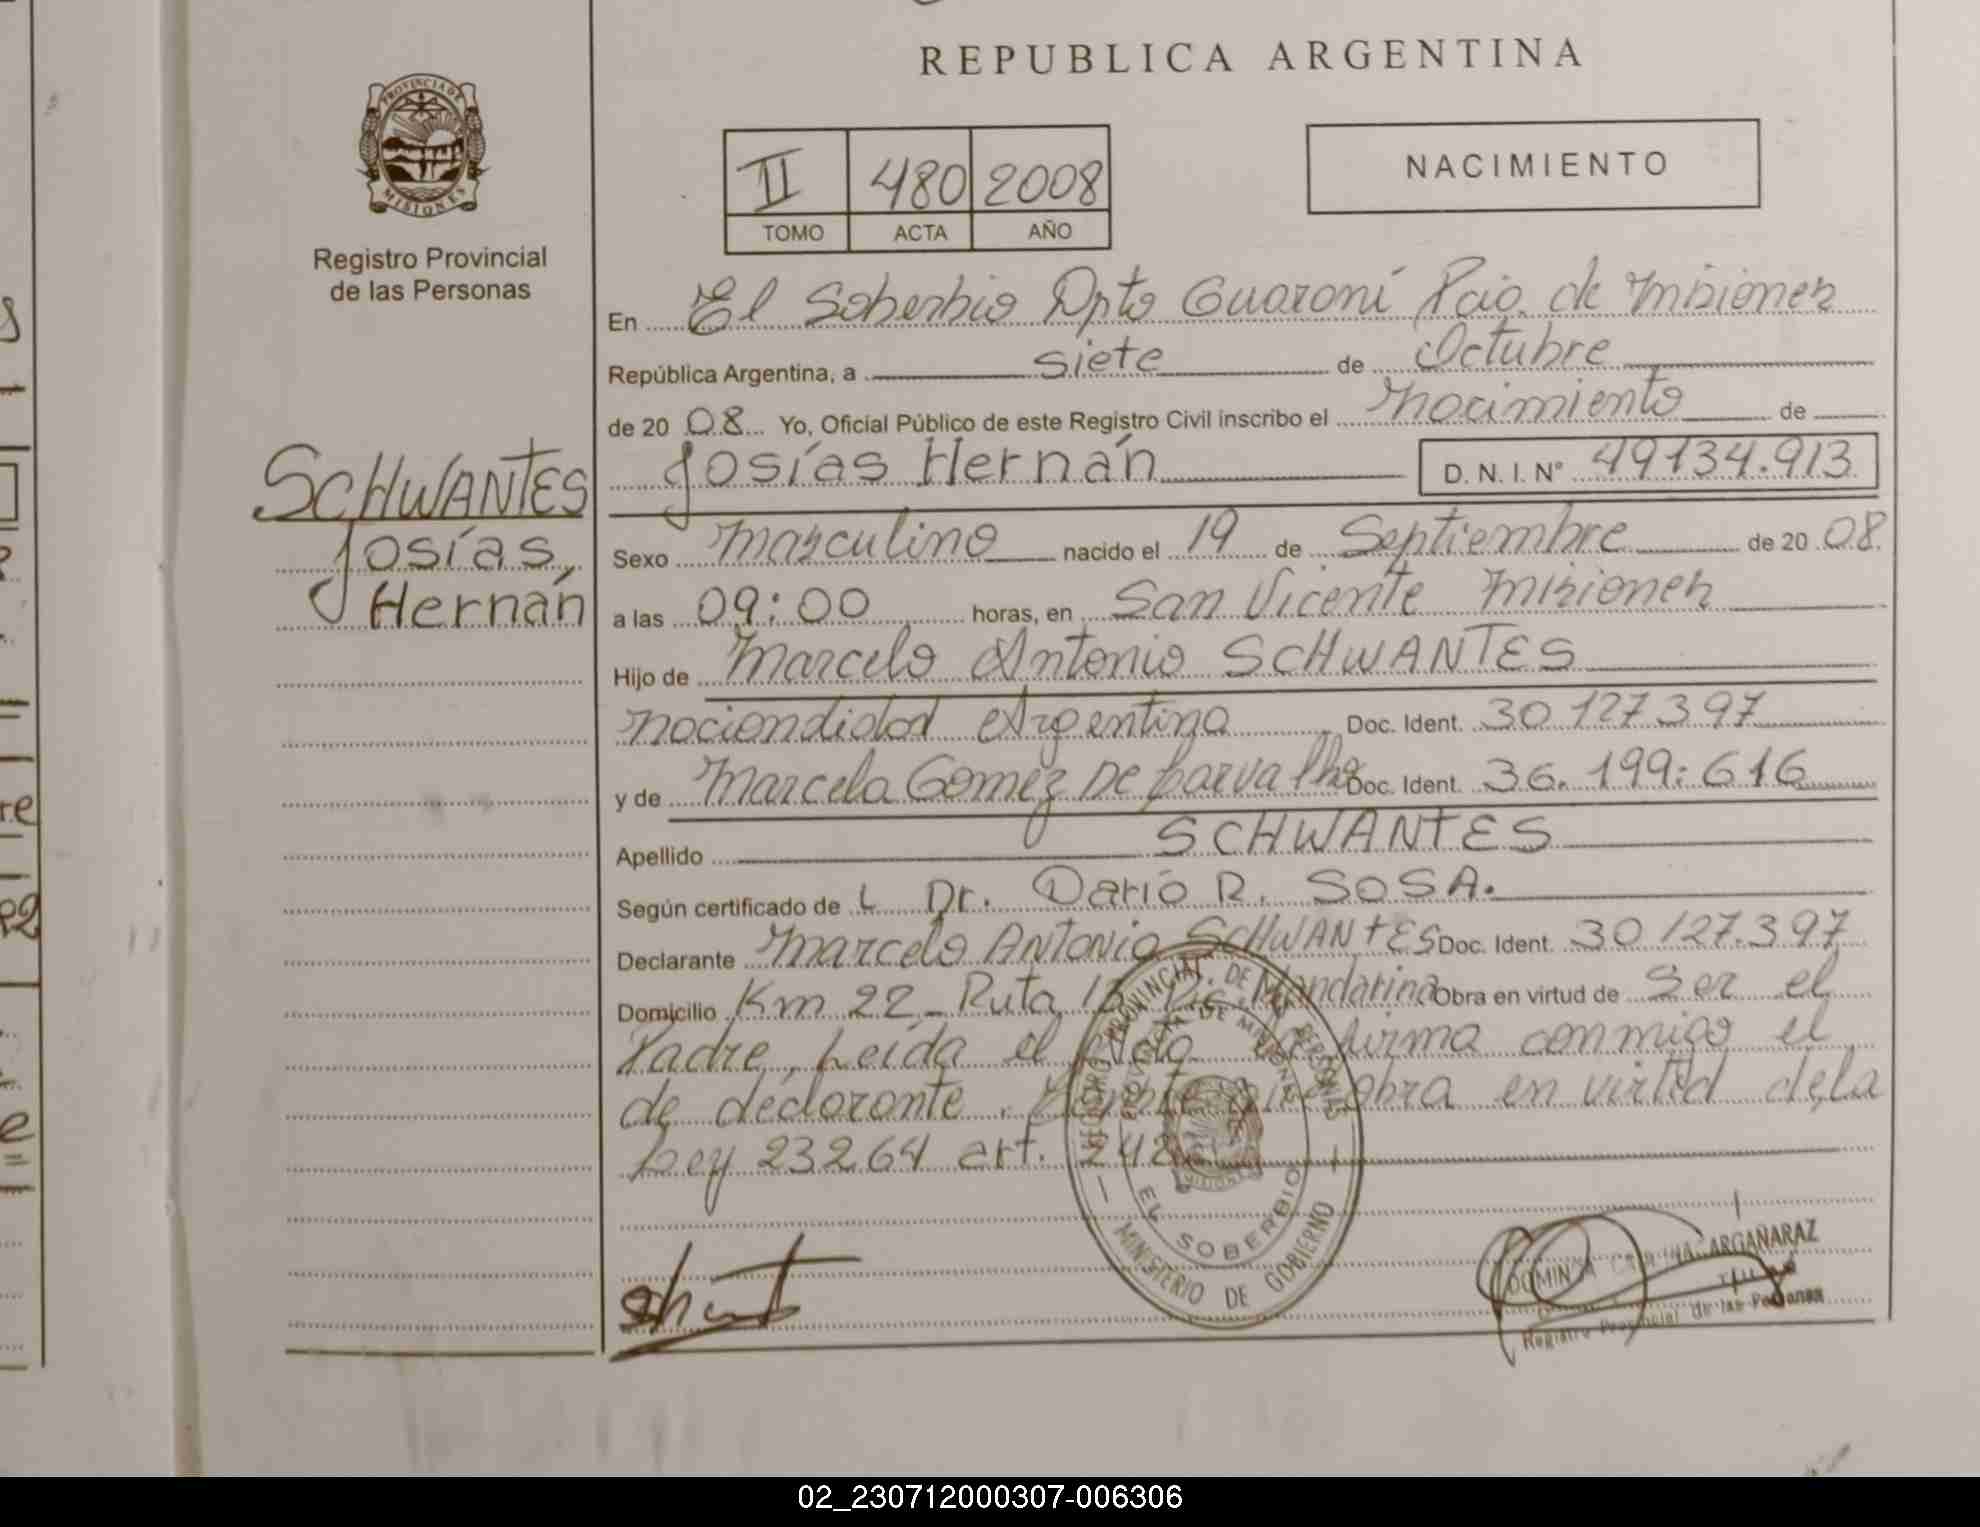 REPUBLICA ARGENTINA
PROVINCIA DE
MISIONES
Registro Provincial
de las Personas
II 480 2008
TOMO ACTA AÑO
NACIMIENTO
En El Soberbio Dpto Guaraní Pcia. de Misiones
República Argentina, a siete de Octubre
de 2008 Yo, Oficial Público de este Registro Civil inscribo el Nacimiento de
Josías Hernán D. N. I. N° 49134.913
SCHWANTES
Josías,
Hernán
Sexo Masculino nacido el 19 de Septiembre de 2008.
a las 09:00 horas, en San Vicente Misiones
Hijo de Marcelo Antonio SCHWANTES
nociondidad Argentina Doc. Ident. 30 127.397
y de Marcela Gomez De Carvalho Doc. Ident. 36.199.616
Apellido SCHWANTES
Según certificado de L Dr. Darío R. SOSA.
Declarante Marcelo Antonio SCHWANTES Doc. Ident. 30 127.397
Domicilio Km 22 - Ruta Mandarina Obra en virtud de Ser el
Padre, Leída el Acta firma conmigo el
de declarante. obra en virtud de la
Ley 23264 art.
REGISTRO PROVINCIAL DE LAS PERSONAS
PROVINCIA DE MISIONES
EL SOBERBIO
MINISTERIO DE GOBIERNO
ARGAÑARAZ
Registro Provincial de las Personas
02_230712000307-006306